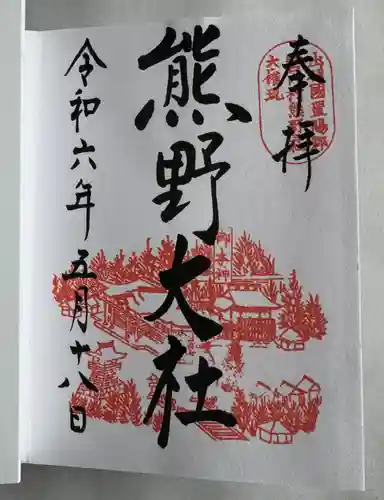 奉拝
熊野大社
令和六年五月十八日